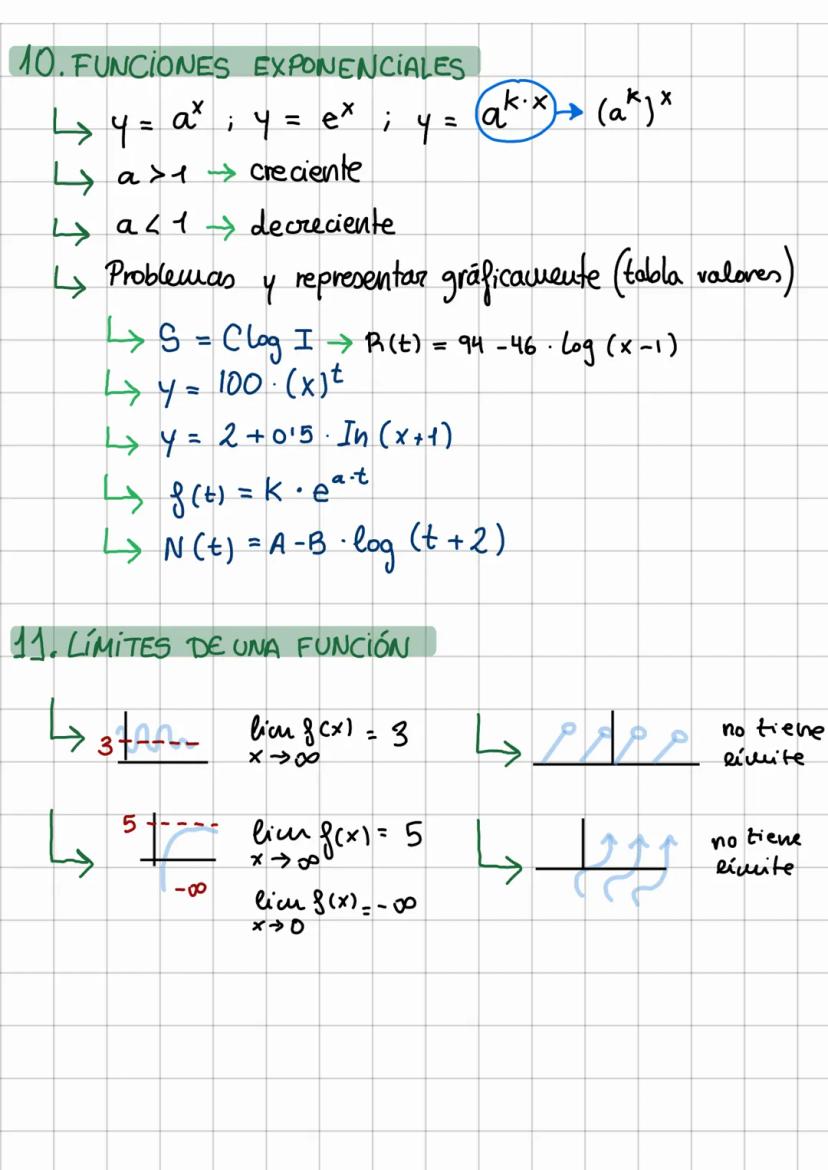 10. FUNCIONES EXPONENCIALES
↳ y = aˣ ; y = eˣ ; y = a^(k·x) → (a^k)^x
↳ a > 1 → creciente
↳ a < 1 → decreciente
↳ Problemas y representar gráficamente (tabla valores)
↳ S = C log I → R(t) = 94 - 46 · log (x-1)
↳ y = 100 · (x)^t
↳ y = 2 + 0'5 · In (x+1)
↳ f(t) = K · e^(a·t)
↳ N(t) = A - B · log (t + 2)
11. LÍMITES DE UNA FUNCIÓN
3
lim f(x) = 3
x → ∞
no tiene
límite
5
-∞
lim f(x) = 5
x → ∞
lim f(x) = -∞
x → 0
no tiene
límite